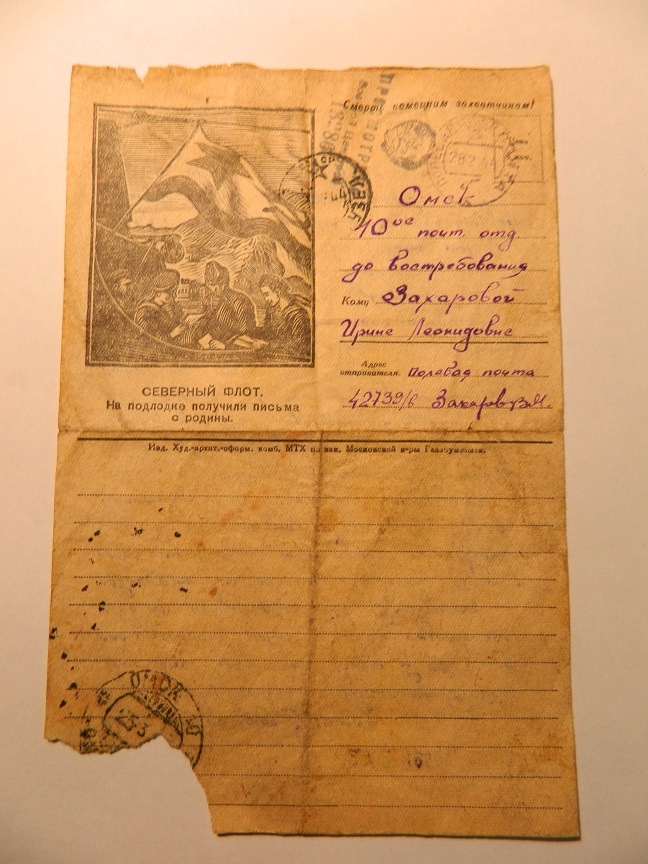 Смерть немецким захватчикам!
ПРОСМОТРЕНО
Омск
40ое почт. отд
до востребования
Кому Захаровой
Ирине Леонидовне
Адрес
отправителя: Полевая почта
42739/б Захаров В.И.
СЕВЕРНЫЙ ФЛОТ.
На подлодке получили письма
с родины.
Изд. Худ.-архит.-оформ. комб. МТХ по зак. Московской к-ры Госвоенкниги.
ОМСК 40
25.3